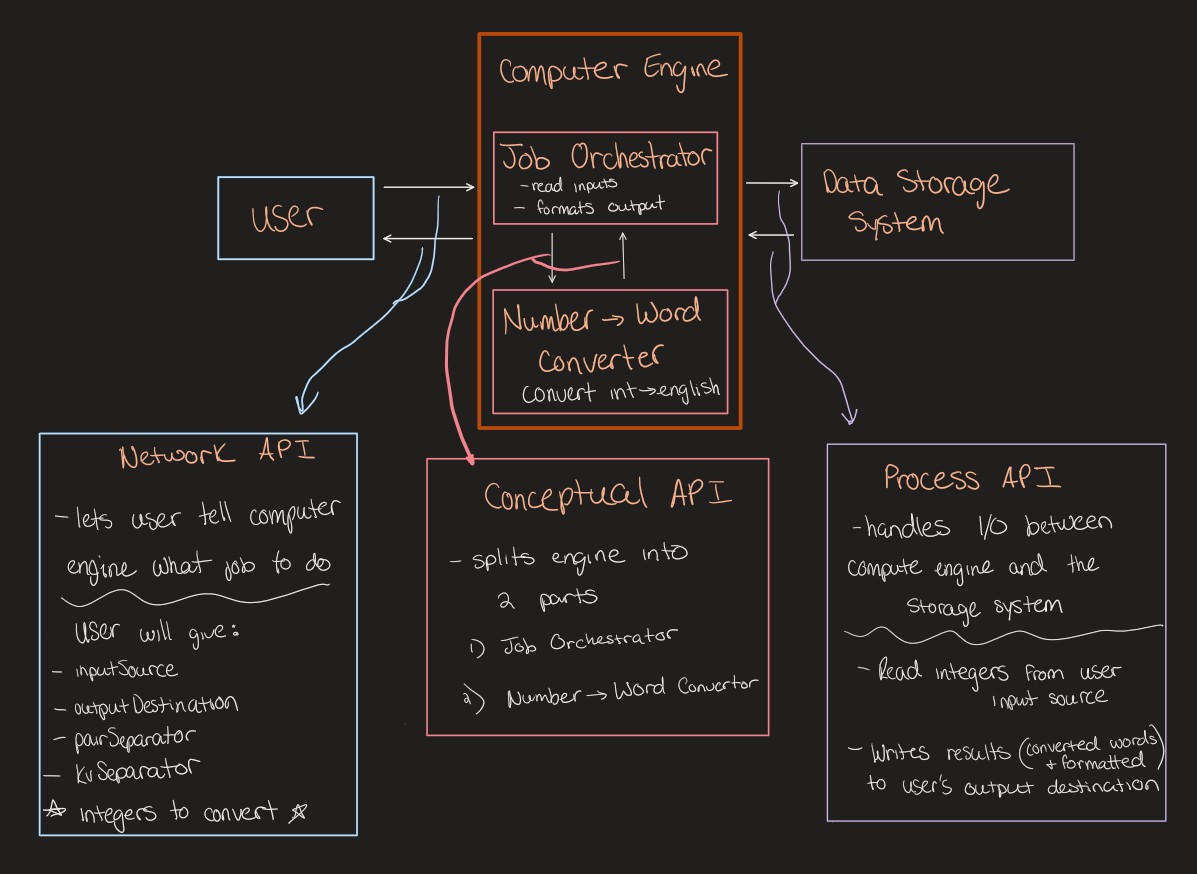 Computer Engine
Job Orchestrator
- read inputs
- formats output
user
Data Storage
System
Number → Word
Converter
Convert int → english
Network API
- lets user tell computer
engine what job to do
User will give:
- inputSource
- outputDestination
- pairSeparator
- KvSeparator
☆ integers to convert ☆
Conceptual API
- splits engine into
2 parts
1) Job Orchestrator
2) Number → Word Convertor
Process API
- handles I/O between
compute engine and the
Storage system
- Read integers from user
input source
- Writes results (converted words
+ formatted)
to user's output destination